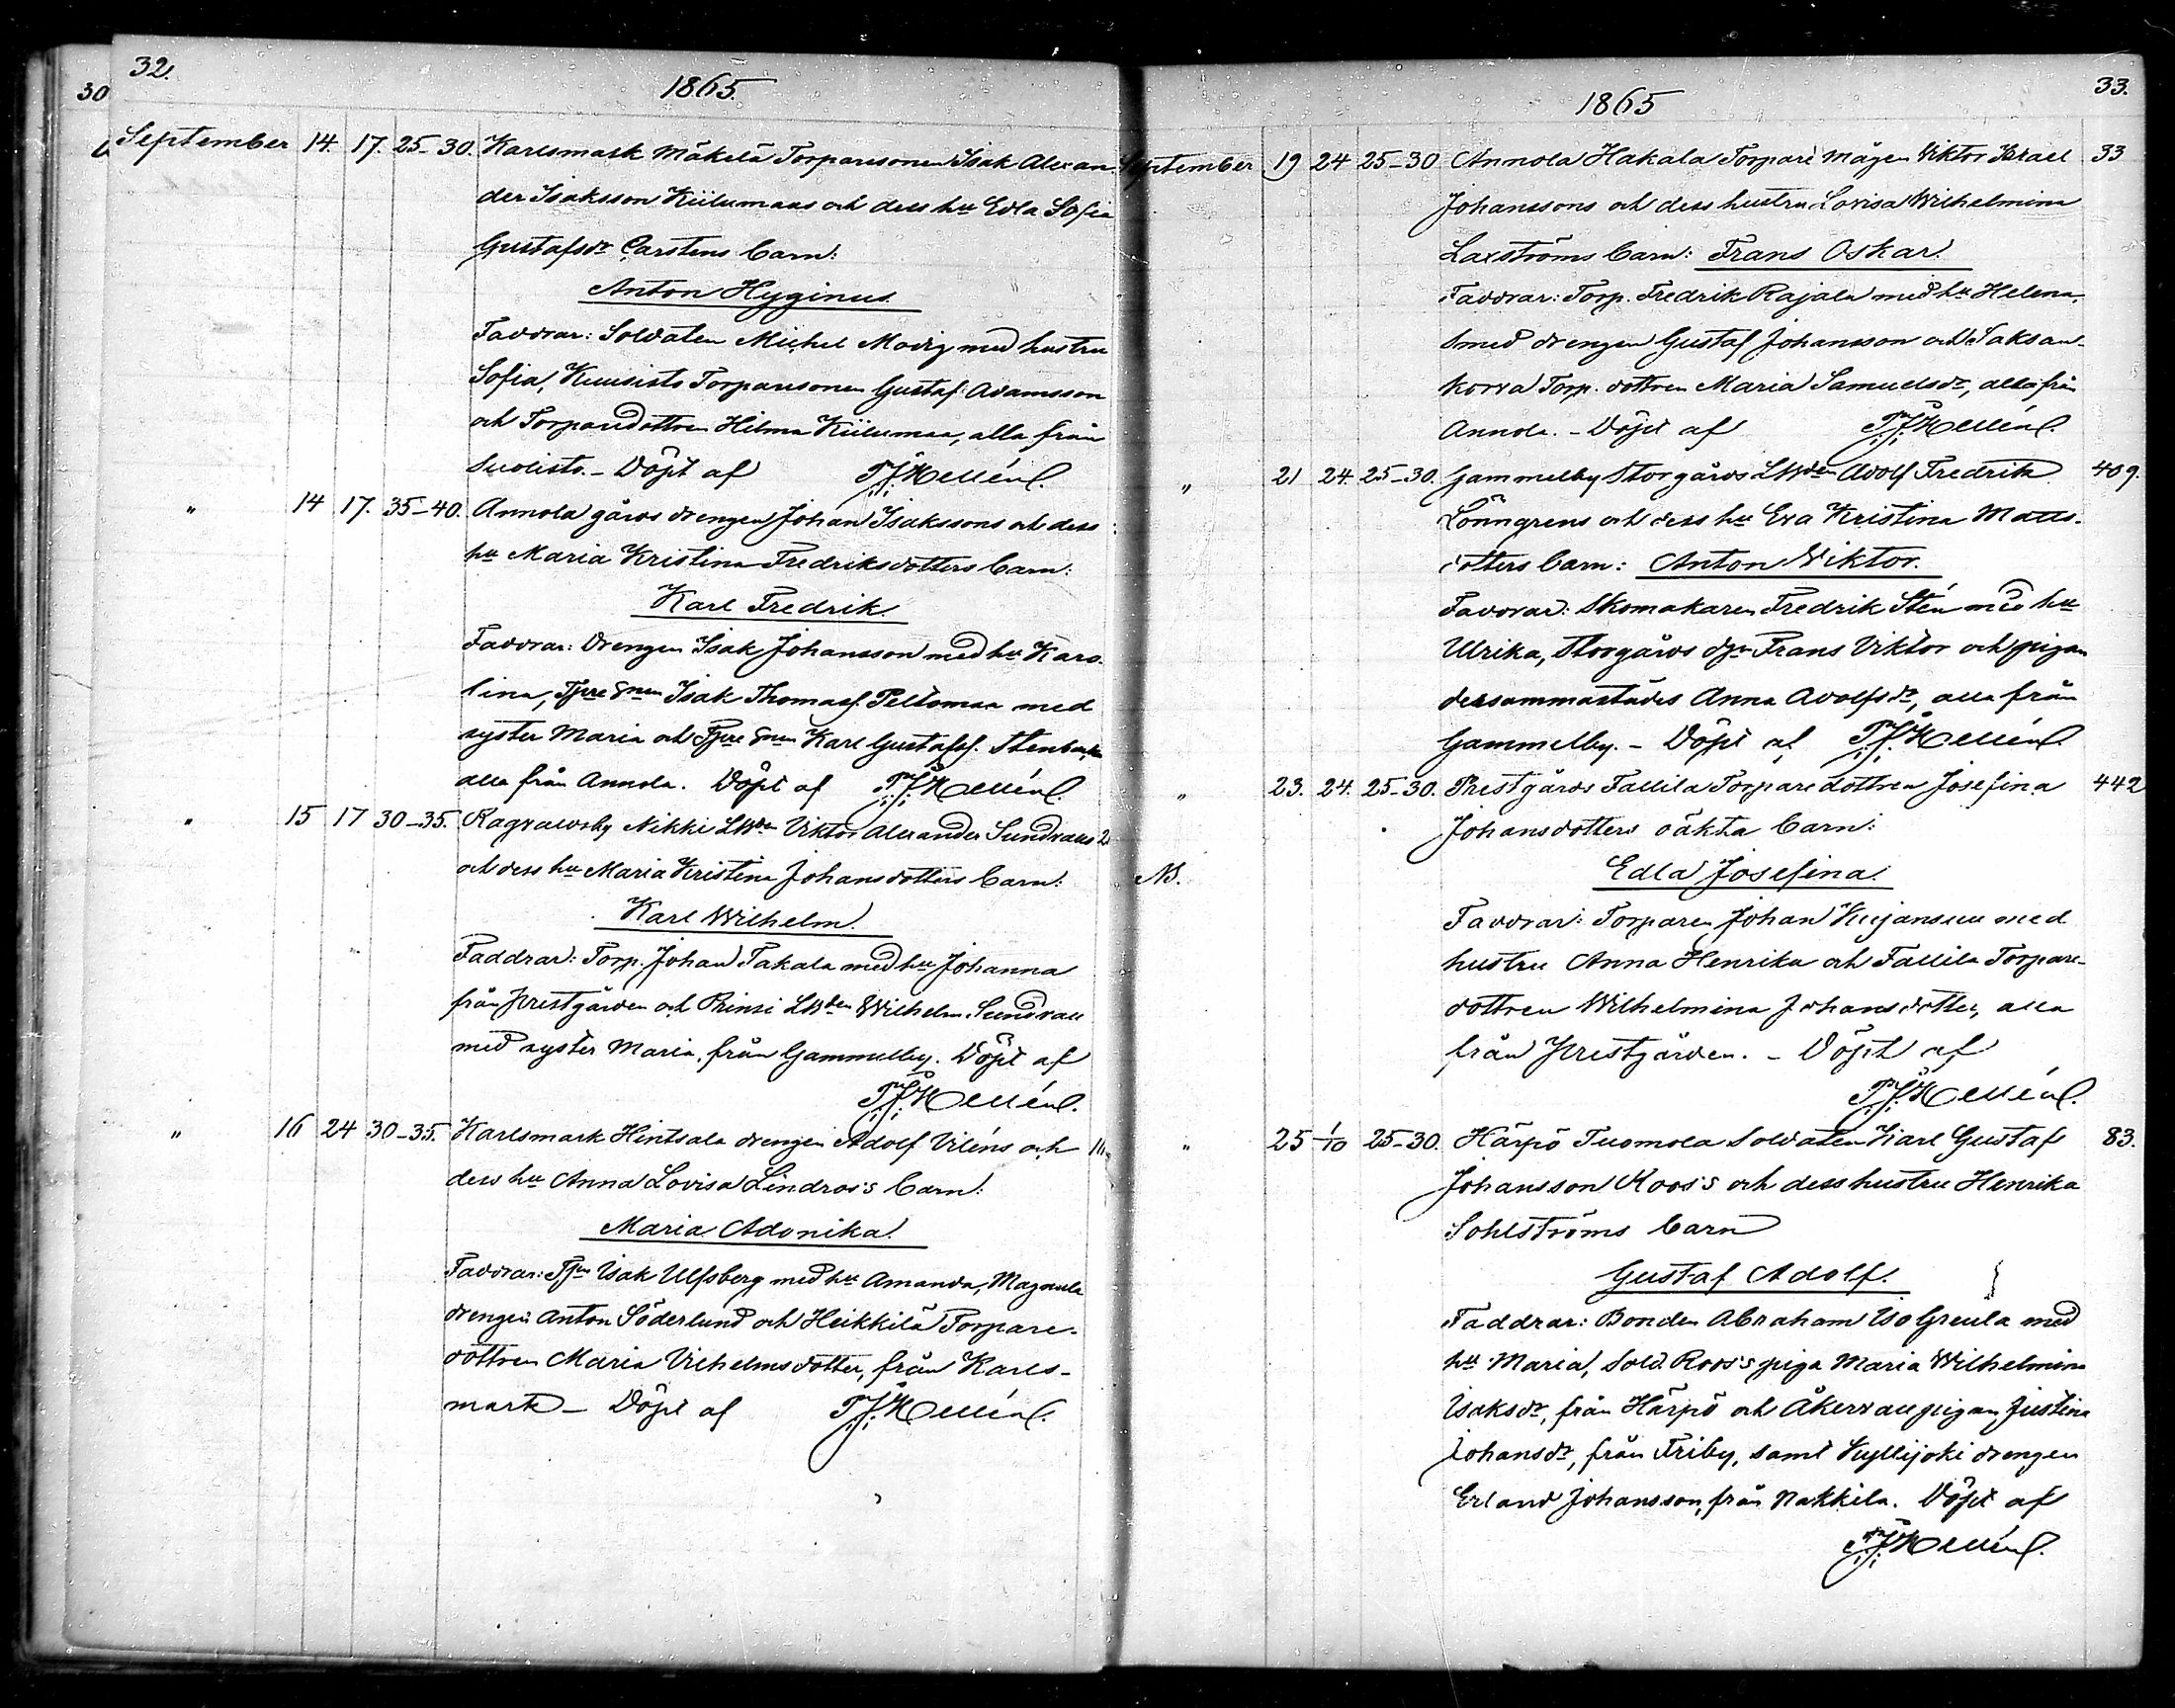 32.
1865.
30
September 14. 17. 25-30. Karlsmark Mäkelä Torparesonen Isak Alexan-
der Isaksson Kiilumaas och dess hu Edla Sofia
Gustafsdr Carstens barn:
Anton Hyginus.
Faddrar: Soldaten Michel Modig med hustru
Sofia, Kuusisto Torparesonen Gustaf Adamsson
och Torparedottren Hilma Kiilumaa, alla från
Suolisto. - Döpt af
" 14 17. 35-40. Annola gårds drengen Johan Isakssons och dess
hu Maria Kristina Fredriksdotters barn:
Karl Fredrik.
Faddrar: Drengen Isak Johansson med hu Karo-
lina, Isak Thomass. Peltomaa med
syster Maria och Karl Gustafss.
alla från Annola. Döpt af
" 15 17 30-35. Ragvaldsby Nikki Viktor Alexander Sundvalls
och dess hu Maria Kristina Johansdotters barn:
Karl Wilhelm.
Faddrar: Torp. Johan Takala med hu Johanna
från Prestgården och Prinsi Wilhelm Sundvall
med syster Maria, från Gammelby. Döpt af
" 16 24 30-35. Karlsmark Hintsala drengen Adolf Viléns och
dess hu Anna Lovisa Lindros's barn:
Maria Adonika.
Faddrar: Isak Ulfsberg med hu Amanda,
drengen Anton Söderlund och Heikkilä Torpare-
dottren Maria Vilhelmsdotter, från Karls-
mark - Döpt af
33.
1865
September 19 24 25-30 Annola Hakala Torpare mågen Viktor Israel 33
Johanssons och dess hustru Lovisa Wilhelmina
Laxströms barn: Frans Oskar.
Faddrar: Torp. Fredrik Rajala med hu Helena,
Smed drengen Gustaf Johansson och Saksan-
korva Torp. dottren Maria Samuelsdr, alla från
Annola. - Döpt af
" 21 24. 25-30. Gammelby Storgårds Adolf Fredrik 409.
Lönngrens och dess hu Eva Kristina Matts-
dotters barn: Anton Wiktor.
Faddrar: Skomakaren Fredrik Stén med hu
Ulrika, Storgårds Frans Viktor och pigan
dersammastädes Anna Adolfsdr, alla från
Gammelby. - Döpt af
" 23. 24. 25-30. Prestgårds Fallila Torparedottren Josefina 442
Johansdotters oäkta barn:
NB.
Edla Josefina.
Faddrar: Torparen Johan Kujansuu med
hustru Anna Henrika och Fallila Torpare-
dottren Wilhelmina Johansdotter, alla
från Prestgården. - Döpt af
" 25 1/10 25-30. Härpö Tuomola Soldaten Karl Gustaf 83.
Johansson Roos's och dess hustru Henrika
Sohlströms barn
Gustaf Adolf.
Faddrar: Bonden Abraham Iso Greula med
hu Maria, Sold. Roos's piga Maria Wilhelmina
Isaksdr, från Härpö och Åkervall pigan Justina
Johansdr, från Friby, samt Kyllijoki drengen
Erland Johansson, från Nakkila. Döpt af